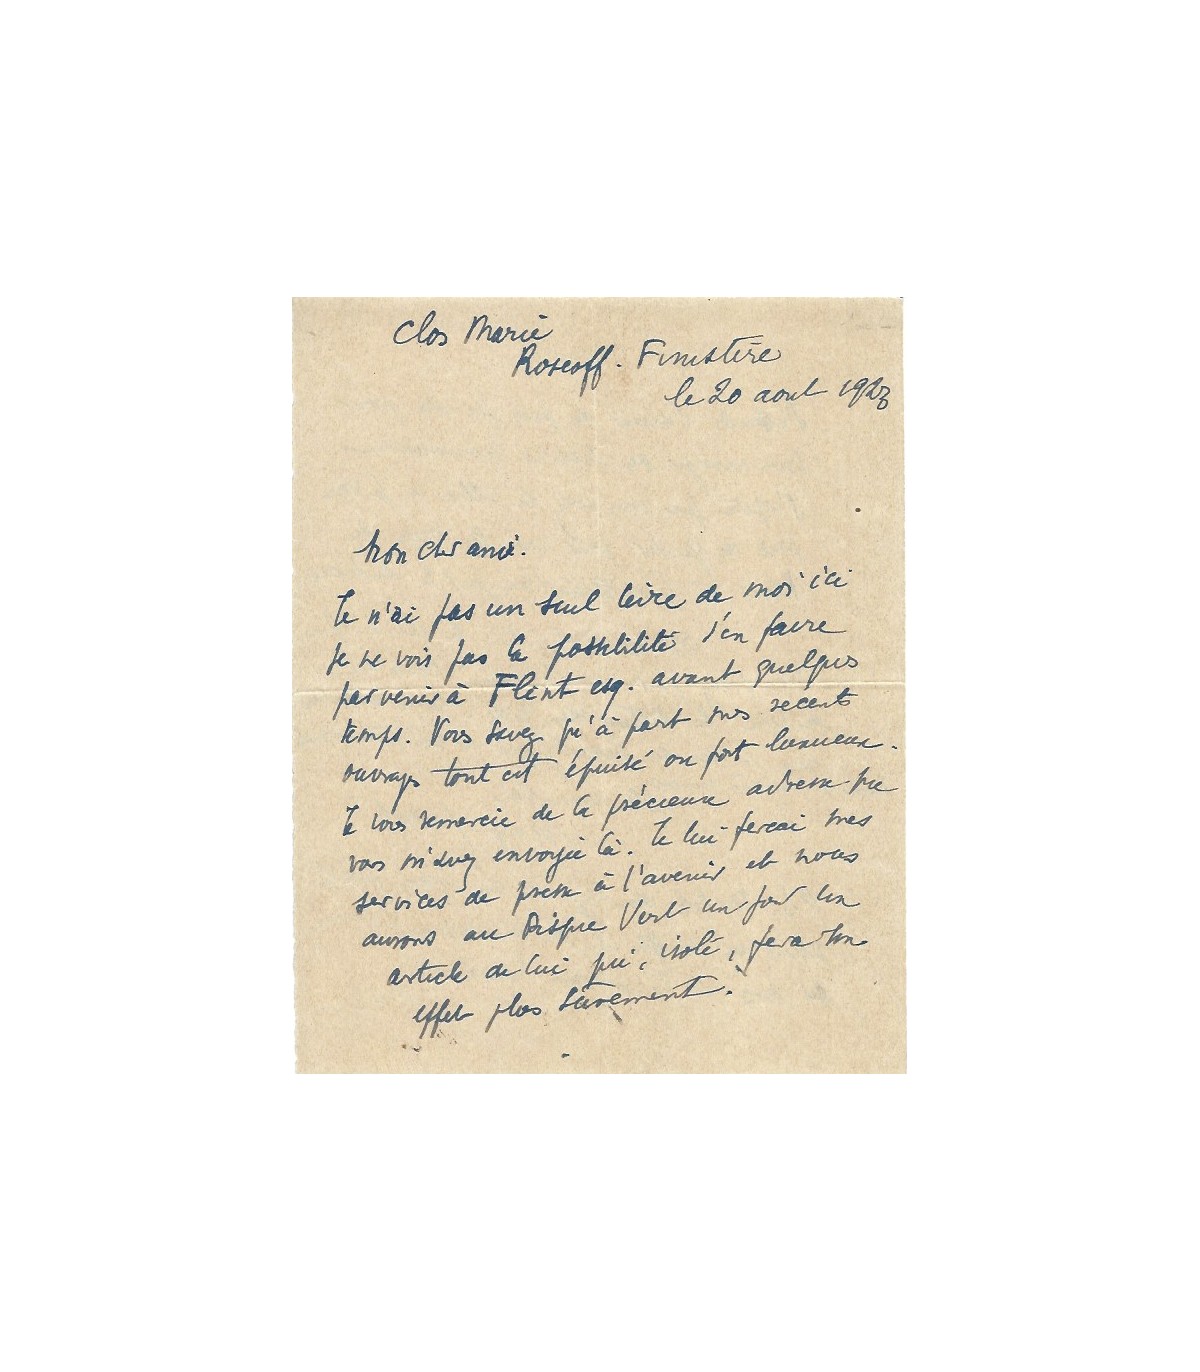 Clos Marie
Roscoff. Finistère
le 20 aout 1923
Mon cher ami.
Je n'ai pas un seul livre de moi ici
je ne vois pas la possibilité d'en faire
parvenir à Flint esq. avant quelques
temps. Vous savez qu'à part mes récents
ouvrages tout est épuisé ou fort luxueux.
Je vous remercie de la précieuse adresse que
vous m'avez envoyée là. Je lui ferai mes
services de presse à l'avenir et nous
aurons au Disque Vert un jour un
article de lui qui, isolé, fera son
effet plus sûrement.